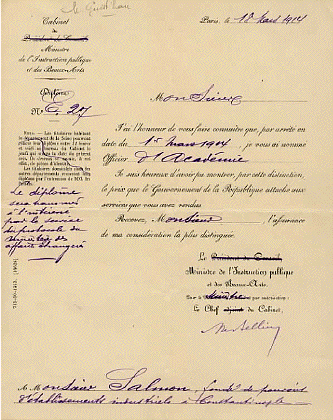 Cabinet
du
Président du Conseil
Ministre
de l'Instruction publique
et des Beaux-Arts
Diplôme
N° C. 27
NOTA. — Les titulaires habitant
le département de la Seine pourront
retirer leur diplôme entre 10 heures
et midi au bureau du Cabinet le
jeudi qui suivra la date du présent
avis.
Les titulaires domiciliés dans les
autres départements recevront leur
diplôme par
Le diplôme
sera transmis
à l'intéressé
par le service
du protocole du
ministère des
affaires étrangères
Paris, le 10 Mars 1904
Monsieur
J'ai l'honneur de vous faire connaître que, par arrêté en
date du 1er mars 1904, je vous ai nommé
Officier d'Académie
Je suis heureux d'avoir pu montrer, par cette distinction,
le prix que le Gouvernement de la République attache aux
services que vous avez rendus.
Recevez, Monsieur, l'assurance
de ma considération la plus distinguée.
Le Président du Conseil
Ministre de l'Instruction publique
et des Beaux-Arts.
Pour le Ministre et par autorisation :
Le Chef adjoint du Cabinet,
A Monsieur Salmon, fondé de pouvoirs
d'établissements industriels à Constantinople